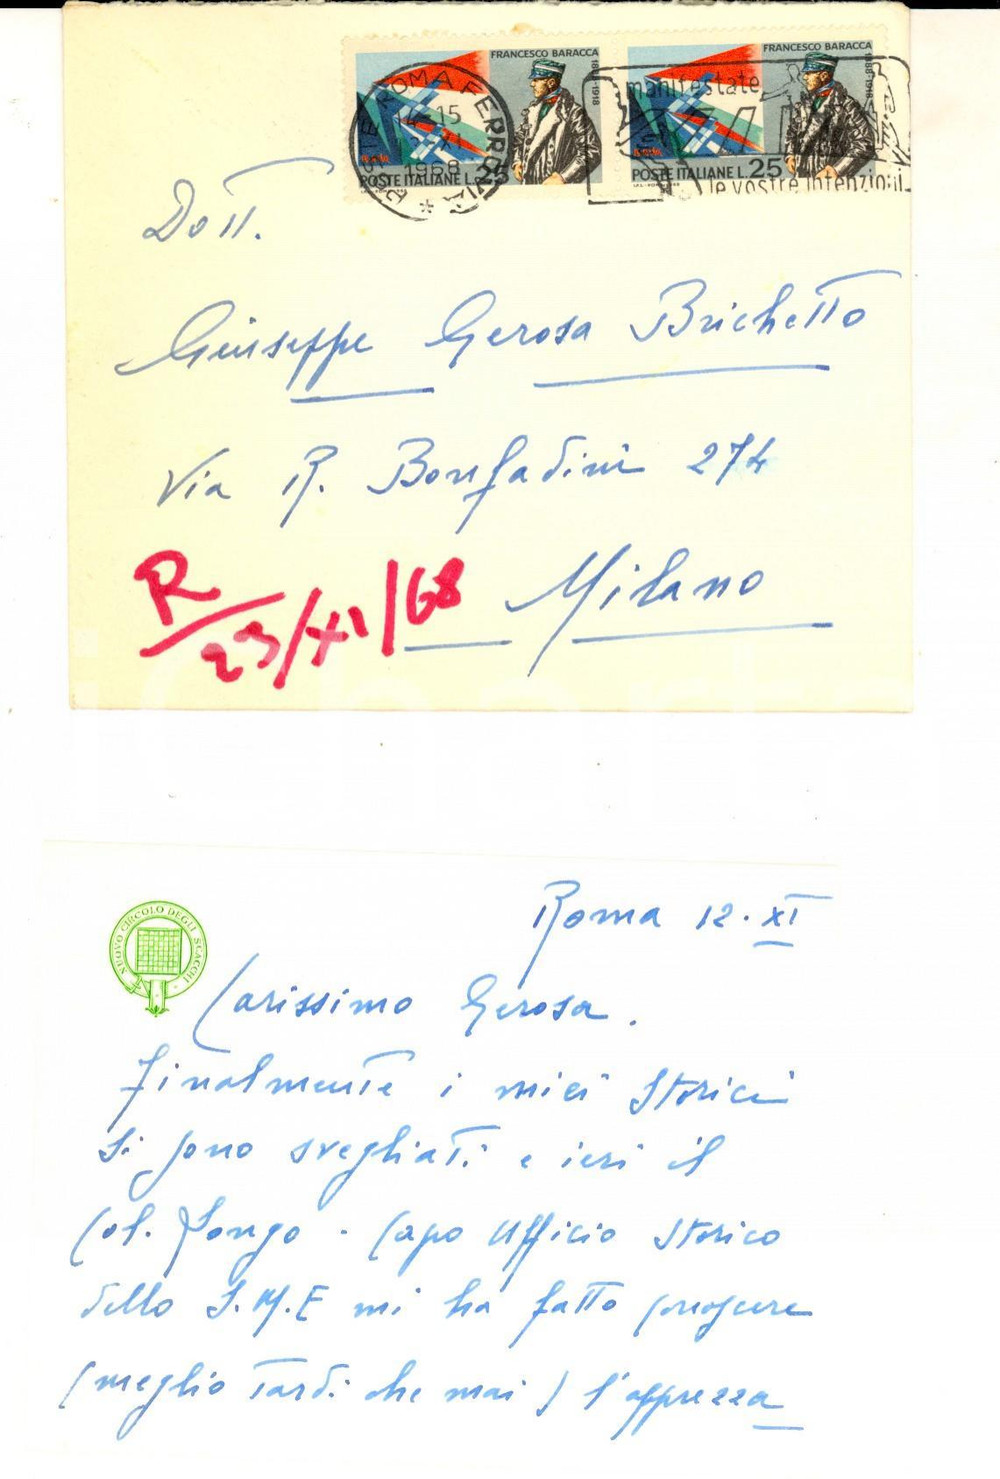 FRANCESCO BARACCA
1888-1918
POSTE ITALIANE L. 25
FRANCESCO BARACCA
1888-1918
POSTE ITALIANE L. 25
ROMA FERROVIA
14-15
XI
1968
manifestate
le vostre intenzioni
Dott.
Giuseppe Gerosa Brichetto
Via R. Bonfadini 274
Milano
R
23/XI/68
NUOVO CIRCOLO DEGLI SCACCHI
Roma 12. XI
Carissimo Gerosa.
Finalmente i miei storici
si sono svegliati e ieri il
Col. Longo - Capo Ufficio Storico
dello S.M.E mi ha fatto conoscere
(meglio tardi che mai) l'apprezza